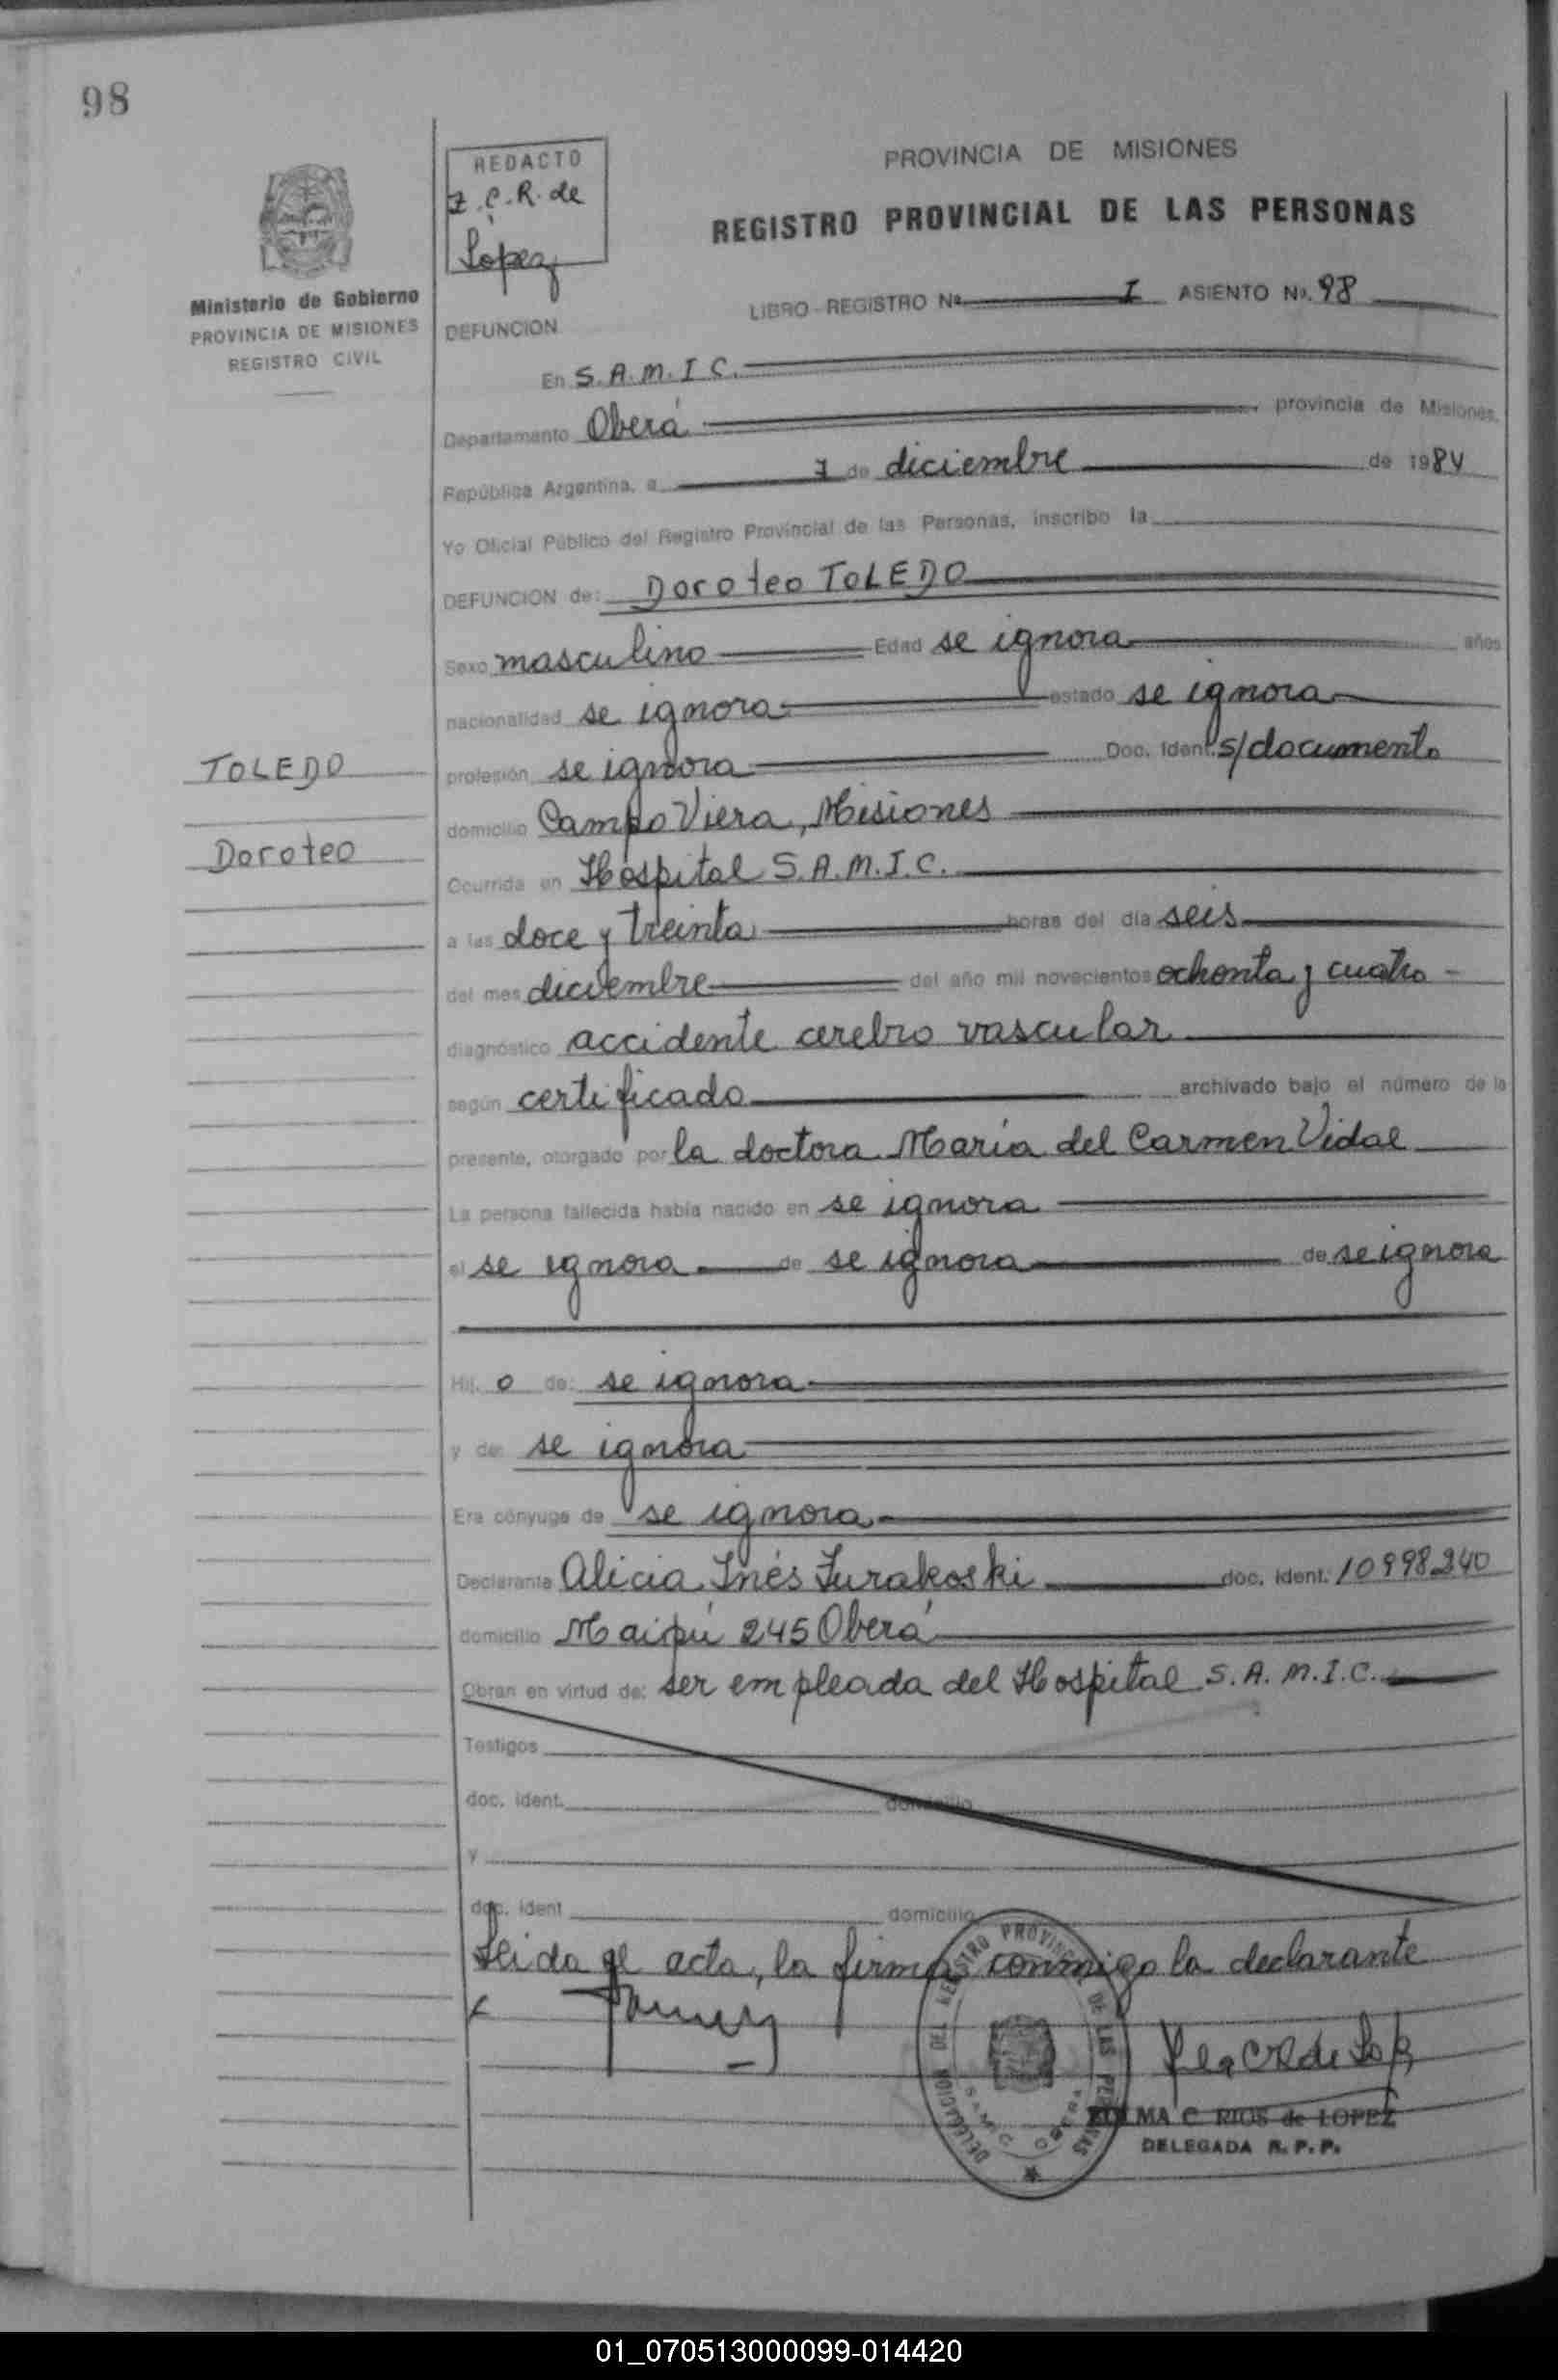 98
REDACTO
Z.C.R. de
López
PROVINCIA DE MISIONES
REGISTRO PROVINCIAL DE LAS PERSONAS
Ministerio de Gobierno
PROVINCIA DE MISIONES
REGISTRO CIVIL
LIBRO - REGISTRO Nº I ASIENTO No. 98
DEFUNCION
En S.A.M.I C.
Departamento Oberá provincia de Misiones,
República Argentina, a 7 de diciembre de 1984
Yo Oficial Público del Registro Provincial de las Personas, inscribo la
DEFUNCION de: Doroteo TOLEDO
Sexo masculino Edad se ignora años
nacionalidad se ignora estado se ignora
TOLEDO
profesión se ignora Doc. Ident. s/documento
domicilio Campo Viera, Misiones
Doroteo
Ocurrida en Hospital S.A.M.I.C.
a las doce y treinta horas del día seis
del mes diciembre del año mil novecientos ochenta y cuatro -
diagnóstico accidente cerebro vascular
según certificado archivado bajo el número de la
presente, otorgado por la doctora María del Carmen Vidal
La persona fallecida había nacido en se ignora
el se ignora de se ignora de se ignora
Hij o de: se ignora
y de: se ignora
Era cónyuge de se ignora
Declarante Alicia Inés Jurakoski doc. ident. 10998240
domicilio Maipú 245 Oberá
Obran en virtud de: ser empleada del Hospital S.A.M.I.C.
Testigos
doc. ident. domicilio
y
doc. ident domicilio
Leida el acta, la firma conmigo la declarante
DELEGACION DEL REGISTRO PROVINCIAL DE LAS PERSONAS
SAMIC OBERA
ZULMA C RIOS de LOPEZ
DELEGADA R.P.P.
01_070513000099-014420